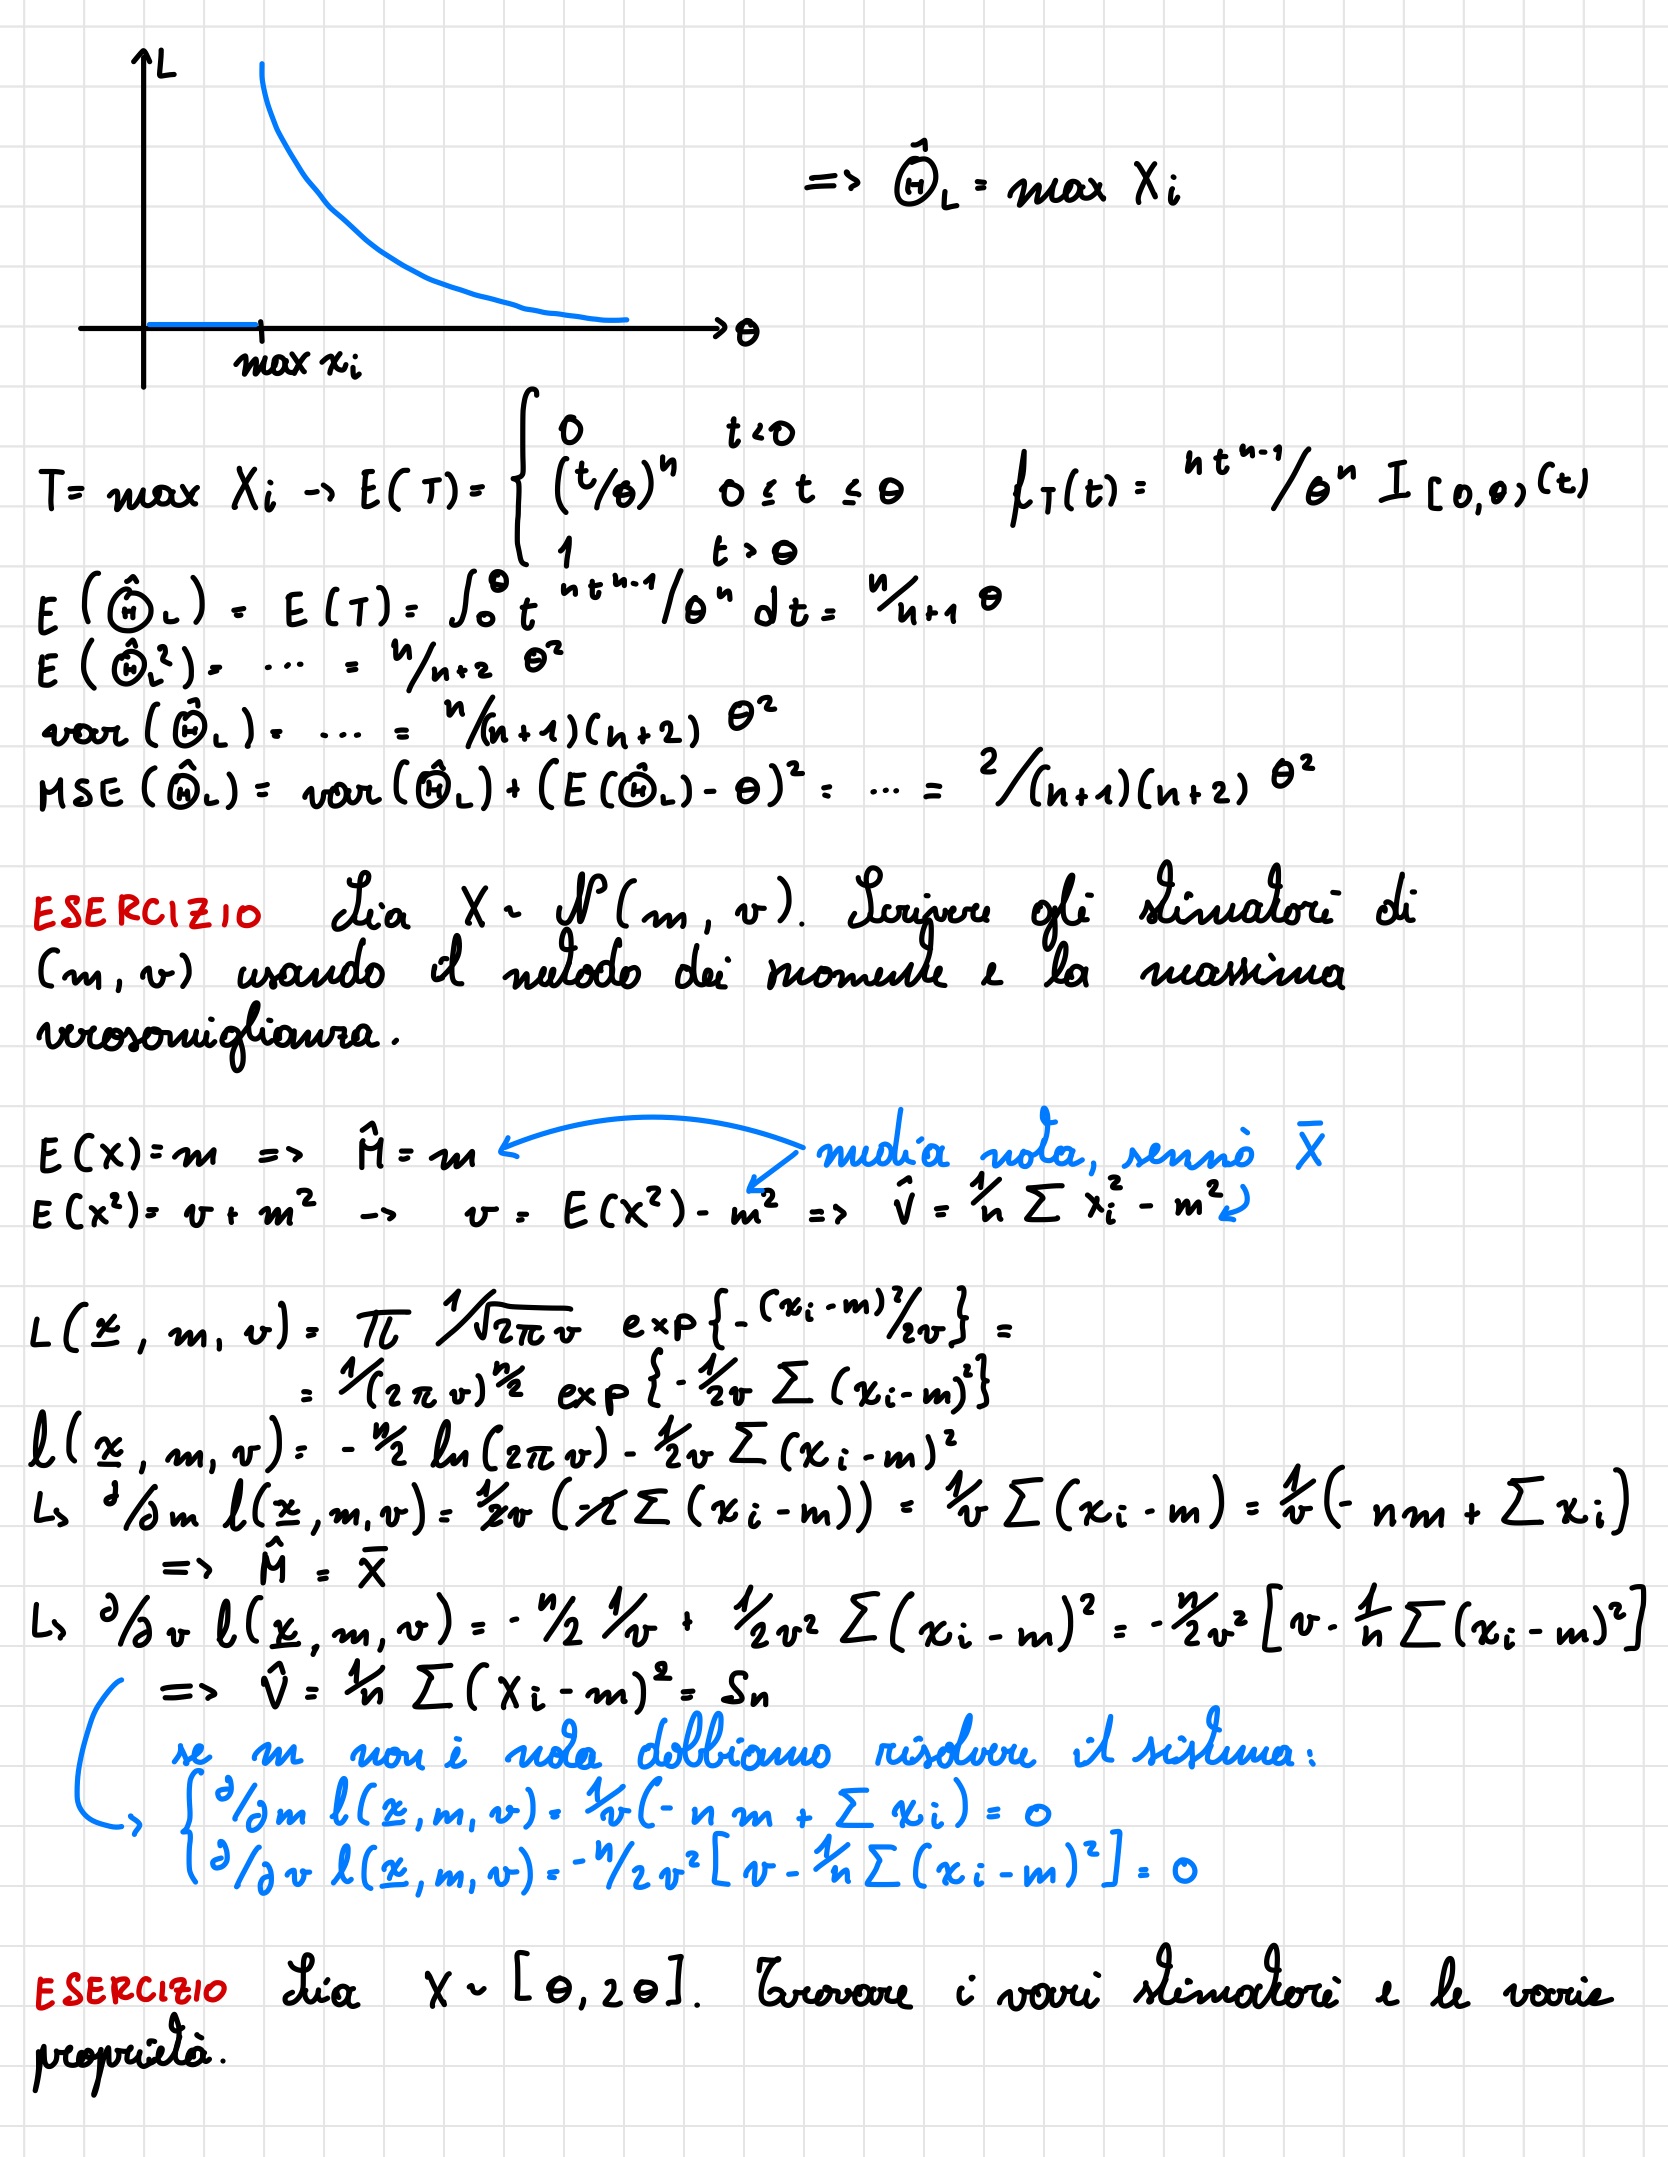 L
=> Θ̂_L = max X_i
θ
max x_i
T = max X_i -> E(T) = { 0 t<0
(t/θ)^n 0 ≤ t ≤ θ f_T(t) = n t^{n-1}/θ^n I_{[0,θ)}(t)
1 t > θ
E(Θ̂_L) = E(T) = ∫_0^θ t n t^{n-1}/θ^n dt = n/n+1 θ
E(Θ̂_L^2) = ... = n/n+2 θ^2
var(Θ̂_L) = ... = n/(n+1)(n+2) θ^2
MSE(Θ̂_L) = var(Θ̂_L) + (E(Θ̂_L) - θ)^2 = ... = 2/(n+1)(n+2) θ^2
ESERCIZIO Sia X ~ N(m, v). Scrivere gli stimatori di
(m, v) usando il metodo dei momenti e la massima
verosomiglianza.
E(X) = m => M̂ = m media nota, sennò X̄
E(X^2) = v + m^2 -> v = E(X^2) - m^2 => V̂ = 1/n Σ x_i^2 - m^2
L(x, m, v) = π 1/√2πv exp{-(x_i-m)^2/2v} =
= 1/(2πv)^{n/2} exp{-1/2v Σ(x_i-m)^2}
l(x, m, v) = -n/2 ln(2πv) - 1/2v Σ(x_i-m)^2
↳ ∂/∂m l(x, m, v) = 1/2v (-2 Σ(x_i-m)) = 1/v Σ(x_i-m) = 1/v (-nm + Σx_i)
=> M̂ = X̄
↳ ∂/∂v l(x, m, v) = -n/2 1/v + 1/2v^2 Σ(x_i-m)^2 = -n/2v^2 [v - 1/n Σ(x_i-m)^2]
=> V̂ = 1/n Σ(X_i-m)^2 = S_n
se m non è nota dobbiamo risolvere il sistema:
{ ∂/∂m l(x, m, v) = 1/v (-nm + Σx_i) = 0
∂/∂v l(x, m, v) = -n/2v^2 [v - 1/n Σ(x_i-m)^2] = 0
ESERCIZIO Sia X ~ [θ, 2θ]. Trovare i vari stimatori e le varie
proprietà.